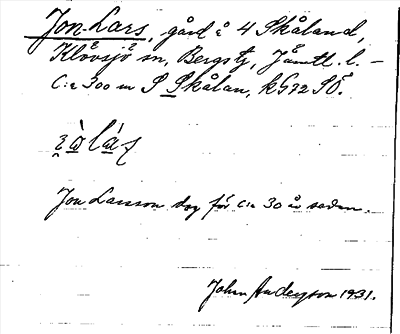 Jon-Lars, gård å 4 Skåland,
Klövsjö sn, Bergs tg, Jämtl. l. –
C:a 300 m S Skålan, kG72 SÖ.
Jon Larsson dog för c:a 30 år sedan.
John Anderzon 1931.